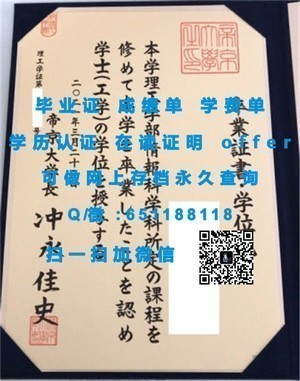 卒業証書・学位
本学理工学部情報科学科所定の課程を
修めて本学を卒業したことを認め
学士(工学)の学位を授与する
年三月二十
帝京大学長 冲永佳史
理工学証第 号
毕业证 成绩单 学费单
学历认证 在读证明 offer
可做网上存档永久查询
Q/微:653188118
扫一扫加微信